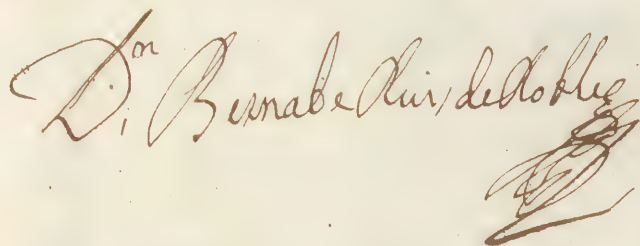 Dn. Bernabe Ruis de Robles